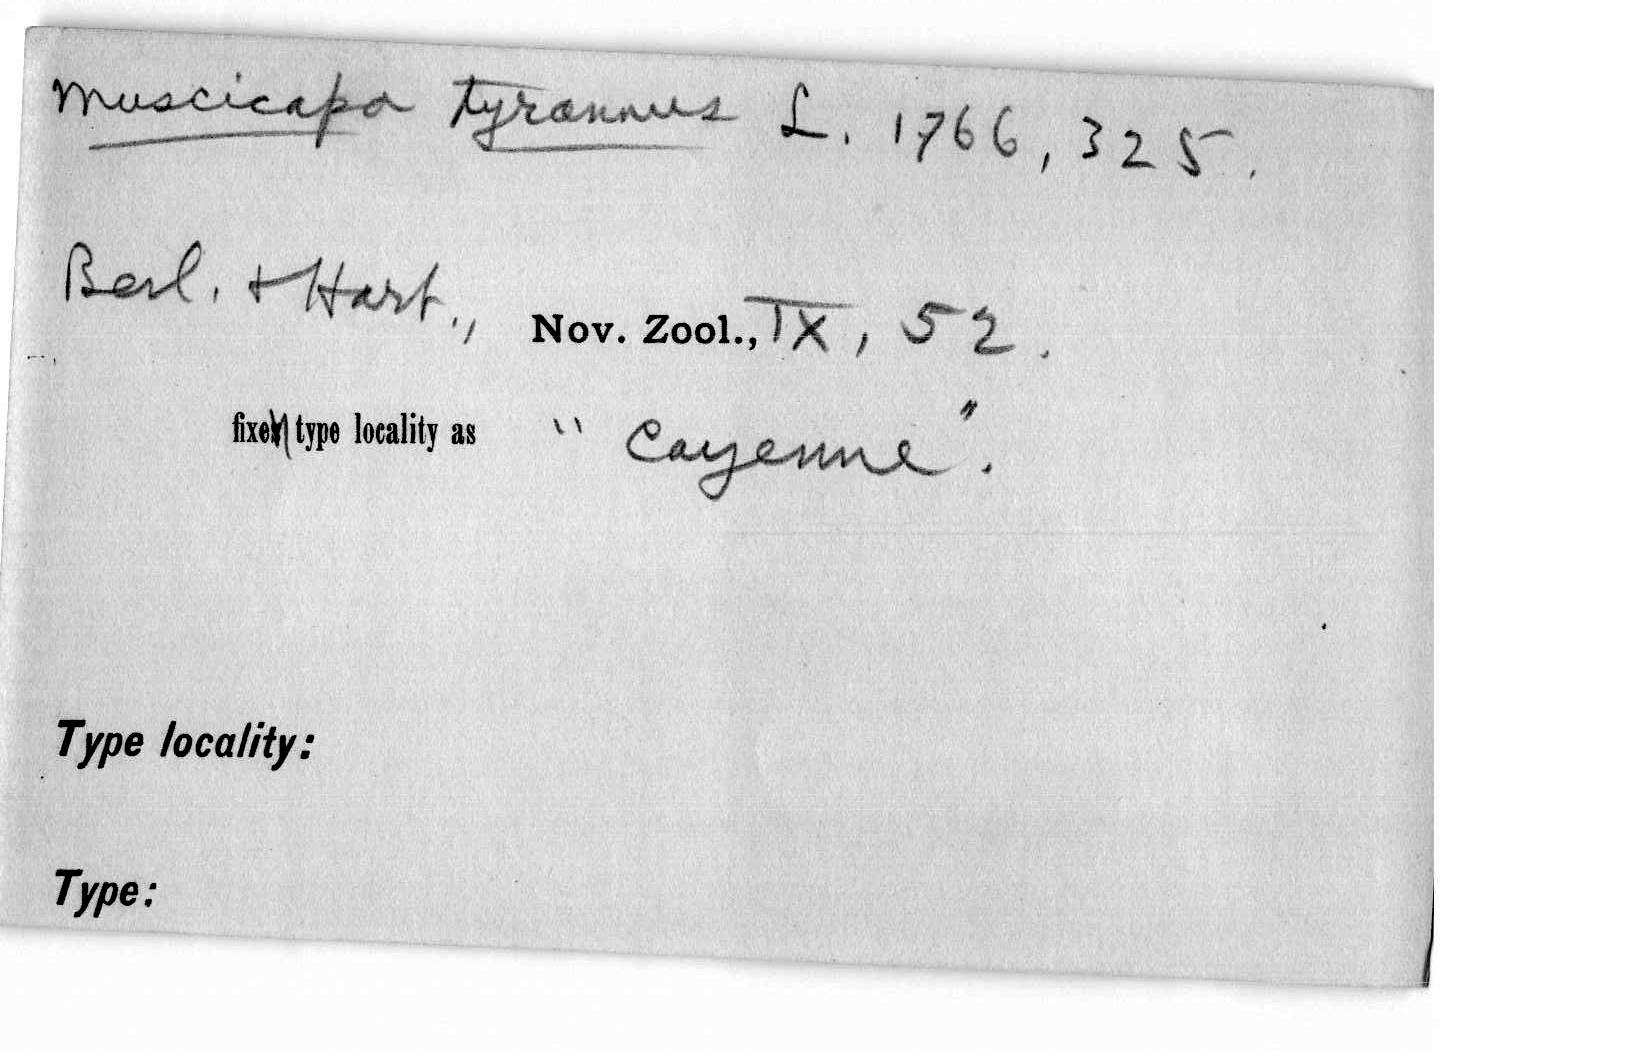 Muscicapa tyrannus L. 1766, 325.
Berl. + Hart., Nov. Zool., IX, 52.
fixe type locality as "Cayenne".
Type locality:
Type: